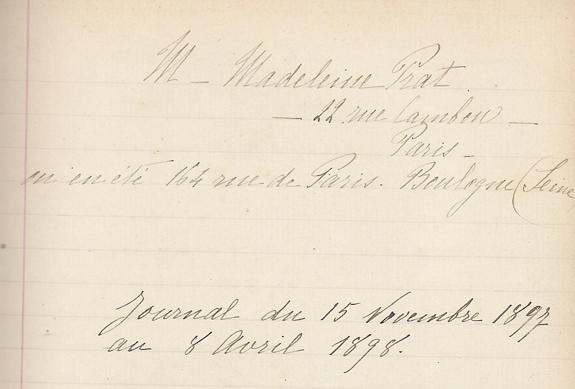 M - Madeleine Prat.
- 22 rue Cambon -
Paris -
ou en été 164 rue de Paris. Boulogne (Seine)
Journal du 15 Novembre 1897
au 8 Avril 1898.